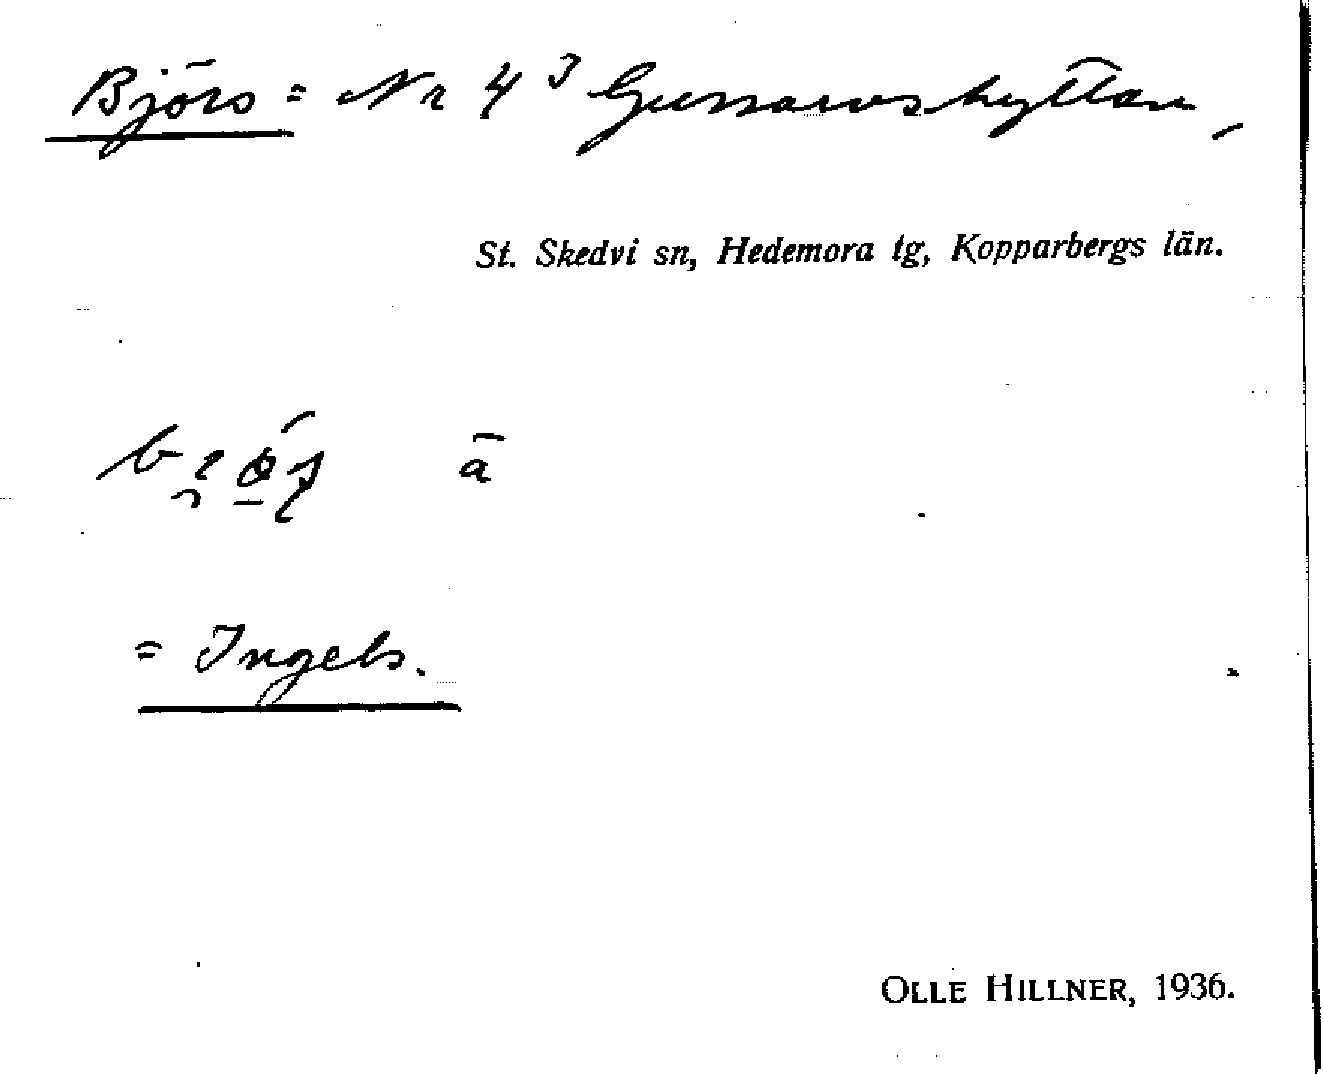 Björs = Nr 4 ᴶ Gussarvshyttan,
St. Skedvi sn, Hedemora tg, Kopparbergs län.
ā
= Ingels.
OLLE HILLNER, 1936.